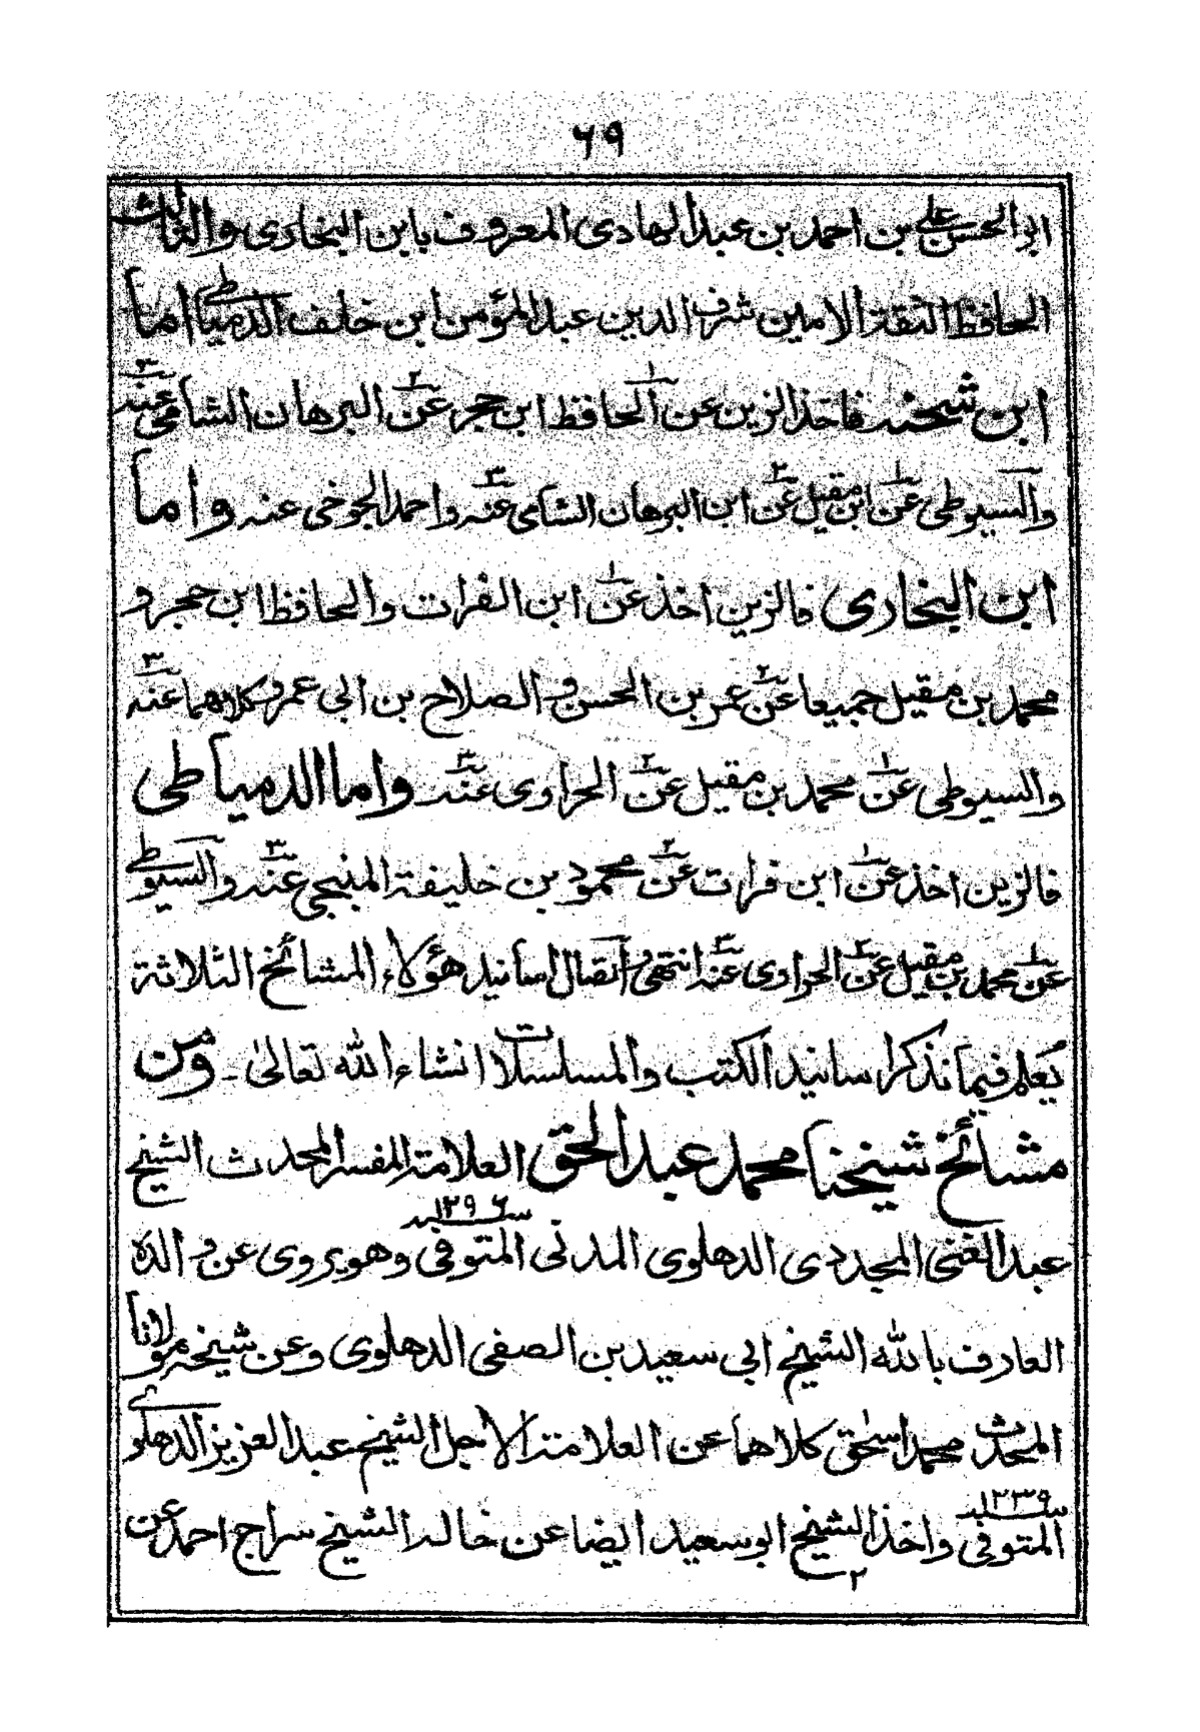 ٦٩
ابو الحسن علی بن احمد بن عبد الهادی المعروف بابن البخاری والثالث
الحافظ الثقة الامین شرف الدین عبد المؤمن ابن خلف الدمیاطی اما
ابن شحنه فاخذ الزین عن ١ الحافظ ابن حجر عن ٢ البرهان الشامی عنه ٣
والسیوطی عن ١ ابن مقبل عن ٢ ابن البرهان الشامی عنه ٣ واحمد الجوخی عنه واما
ابن البخاری فالزین اخذ عن ١ ابن الفرات والحافظ ابن حجر و
محمد بن مقبل جمیعا عن ٢ عمر بن الحسن و الصلاح بن ابی عمر وکلاهما عنه ٣
والسیوطی عن ١ محمد بن مقبل عن ٢ الحراوی عنه ٣ واما الدمیاطی
فالزین اخذ عن ١ ابن فرات عن ٢ محمود بن خلیفة المنبجی عنه ٣ والسیوطی
عن ١ محمد بن مقبل عن ٢ الحراوی عنه ٣ انتهی واتصال اسانید هؤلاء المشائخ الثلاثة
یعلم فیما نذکر اسانید الکتب والمسلسلات انشاء الله تعالیٰ ۔ ومن
مشائخ شیخنا محمد عبد الحق العلامة المفسر المحدث الشیخ
عبد الغنی المجددی الدهلوی المدنی المتوفی سنه ١٢٩٦ وهو یروی عن والده
العارف بالله الشیخ ابی سعید بن الصفی الدهلوی وعن شیخه مولانا
المحدث محمد اسحٰق کلاهما عن العلامة الاجل الشیخ عبد العزیز الدهلوی
المتوفی سنه ١٢٣٩ واخذ الشیخ ابو سعید ایضا عن خاله الشیخ سراج احمد عن
٢